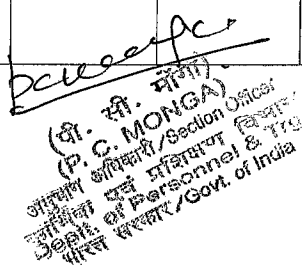 (पी. सी. मोंगा)
(P. C. MONGA)
अनुभाग अधिकारी/Section Officer
एवं प्रशिक्षण विभाग
Deptt. of Personnel & Trg
भारत सरकार/Govt. of India